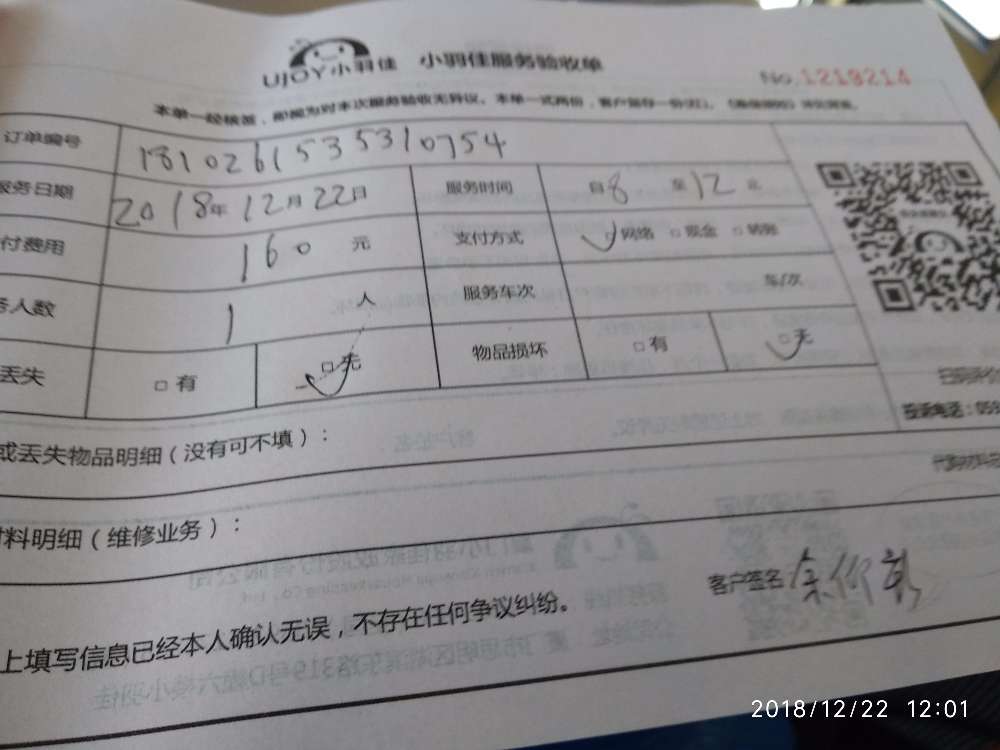 UJOY小羽佳 小羽佳服务验收单
No.1219214
本单一经核签，即视为对本次服务验收无异议。本单一式两份，客户留存一份
订单编号 1810261535310754
服务日期 2018年12月22日 服务时间 自8至12止
付费用 160元 支付方式 网络 □现金 □转账
务人数 1人 服务车次 车/次
丢失 □有 □无 物品损坏 □有 □无
扫码评价
投诉电话：059
或丢失物品明细（没有可不填）：
材料明细（维修业务）：
客户签名
上填写信息已经本人确认无误，不存在任何争议纠纷。
2018/12/22 12:01